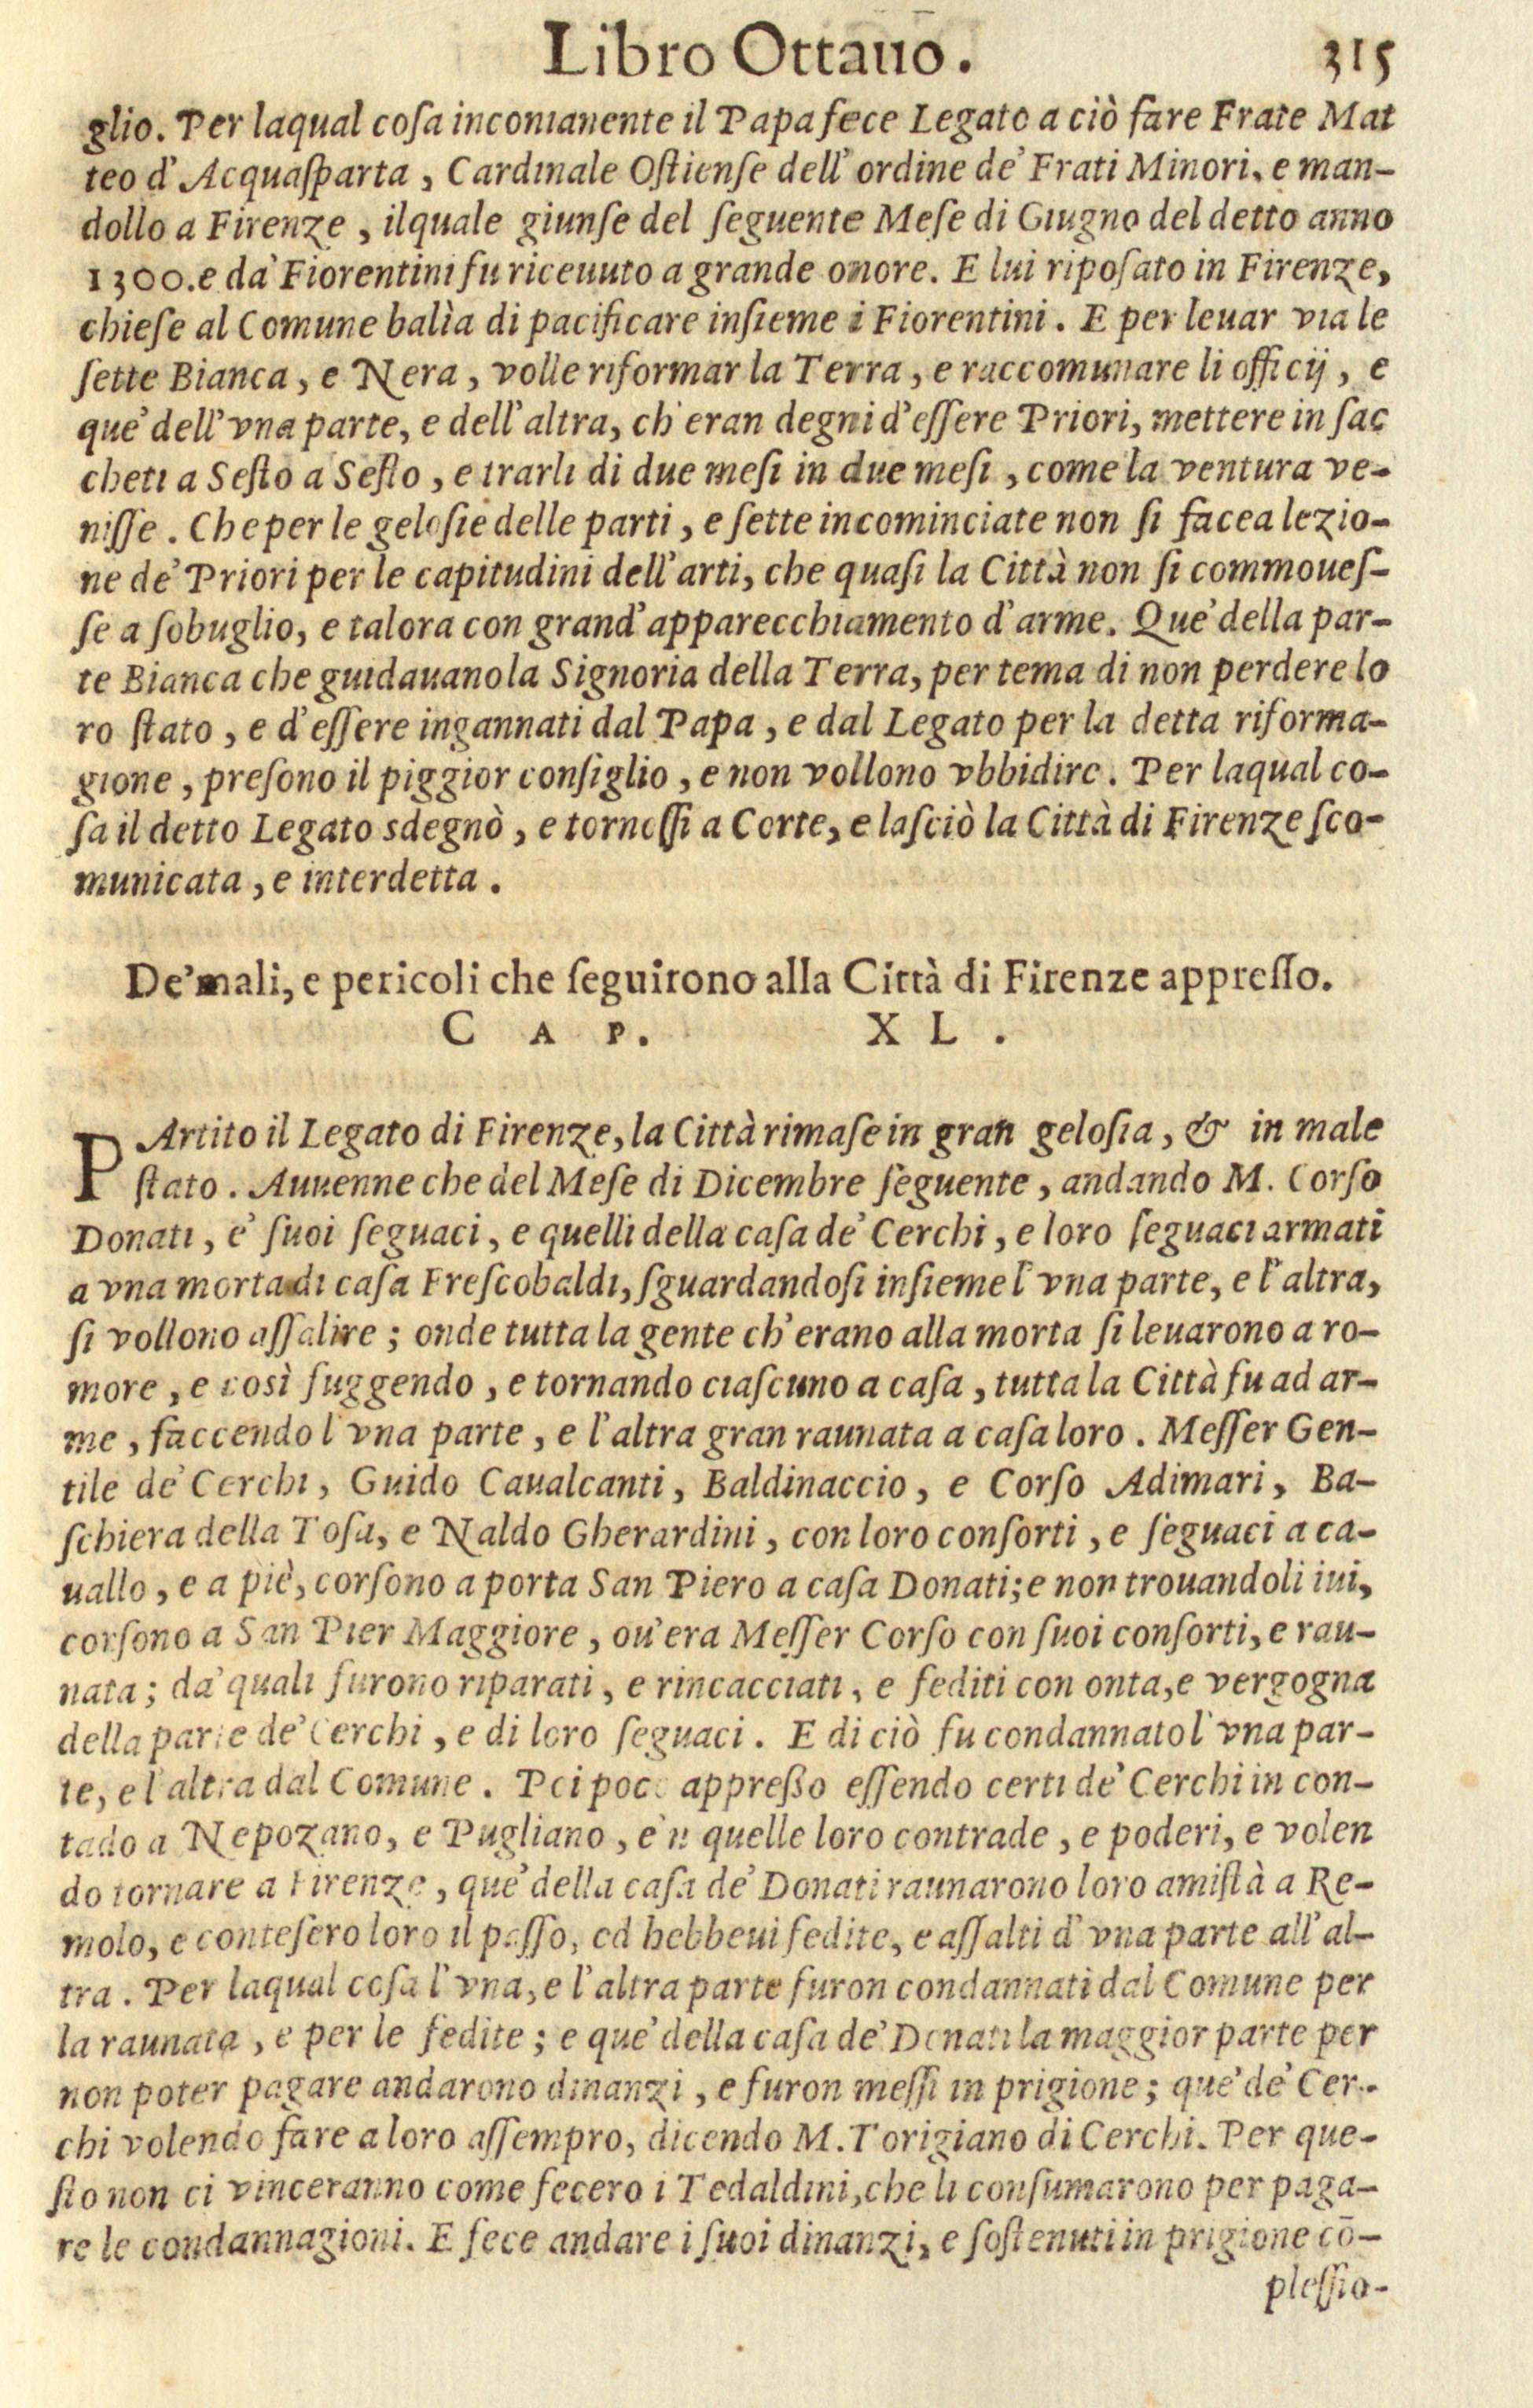 Libro Ottauo. 315
glio. Per laqual coſa incontanente il Papa fece Legato a ciò fare Frate Mat
teo d'Acquaſparta, Cardinale Oſtienſe dell'ordine de' Frati Minori, e man-
dollo a Firenze, ilquale giunſe del ſeguente Meſe di Giugno del detto anno
1300. e da' Fiorentini fu riceuuto a grande onore. E lui ripoſato in Firenze,
chieſe al Comune balìa di pacificare inſieme i Fiorentini. E per leuar via le
ſette Bianca, e Nera, volle riformar la Terra, e raccomunare li officij, e
que' dell'vna parte, e dell'altra, ch'eran degni d'eſſere Priori, mettere in ſac
cheti a Seſto a Seſto, e trarli di due meſi in due meſi, come la ventura ve-
niſſe. Che per le geloſie delle parti, e ſette incominciate non ſi facea lezio-
ne de' Priori per le capitudini dell'arti, che quaſi la Città non ſi commoueſ-
ſe a ſobuglio, e talora con grand'apparecchiamento d'arme. Que' della par-
te Bianca che guidauano la Signoria della Terra, per tema di non perdere lo
ro ſtato, e d'eſſere ingannati dal Papa, e dal Legato per la detta riforma-
gione, preſono il piggior conſiglio, e non vollono vbbidire. Per laqual co-
ſa il detto Legato sdegnò, e tornoſſi a Corte, e laſciò la Città di Firenze ſco-
municata, e interdetta.
De' mali, e pericoli che ſeguirono alla Città di Firenze appreſſo.
CAP. XL.
PArtito il Legato di Firenze, la Città rimaſe in gran geloſia, & in male
ſtato. Auuenne che del Meſe di Dicembre ſeguente, andando M. Corſo
Donati, e' ſuoi ſeguaci, e quelli della caſa de' Cerchi, e loro ſeguaci armati
a vna morta di caſa Freſcobaldi, ſguardandoſi inſieme l'vna parte, e l'altra,
ſi vollono aſſalire; onde tutta la gente ch'erano alla morta ſi leuarono a ro-
more, e così fuggendo, e tornando ciaſcuno a caſa, tutta la Città fu ad ar-
me, faccendo l'vna parte, e l'altra gran raunata a caſa loro. Meſſer Gen-
tile de' Cerchi, Guido Caualcanti, Baldinaccio, e Corſo Adimari, Ba-
ſchiera della Toſa, e Naldo Gherardini, con loro conſorti, e ſeguaci a ca-
uallo, e a piè, corſono a porta San Piero a caſa Donati; e non trouandoli iui,
corſono a San Pier Maggiore, ou'era Meſſer Corſo con ſuoi conſorti, e rau-
nata; da' quali furono riparati, e rincacciati, e fediti con onta, e vergogna
della parte de' Cerchi, e di loro ſeguaci. E di ciò fu condannato l'vna par-
te, e l'altra dal Comune. Poi poco appreßo eſſendo certi de' Cerchi in con-
tado a Nepozano, e Pugliano, e 'n quelle loro contrade, e poderi, e volen
do tornare a Firenze, que' della caſa de' Donati raunarono loro amiſtà a Re-
molo, e conteſero loro il paſſo, ed hebbeui fedite, e aſſalti d'vna parte all'al-
tra. Per laqual coſa l'vna, e l'altra parte furon condannati dal Comune per
la raunata, e per le fedite; e que' della caſa de' Donati la maggior parte per
non poter pagare andarono dinanzi, e furon meſſi in prigione; que' de' Cer-
chi volendo fare a loro aſſempro, dicendo M. Torigiano di Cerchi. Per que-
ſto non ci vinceranno come fecero i Tedaldini, che li conſumarono per paga-
re le condannagioni. E fece andare i ſuoi dinanzi, e ſoſtenuti in prigione cō-
pleſſio-